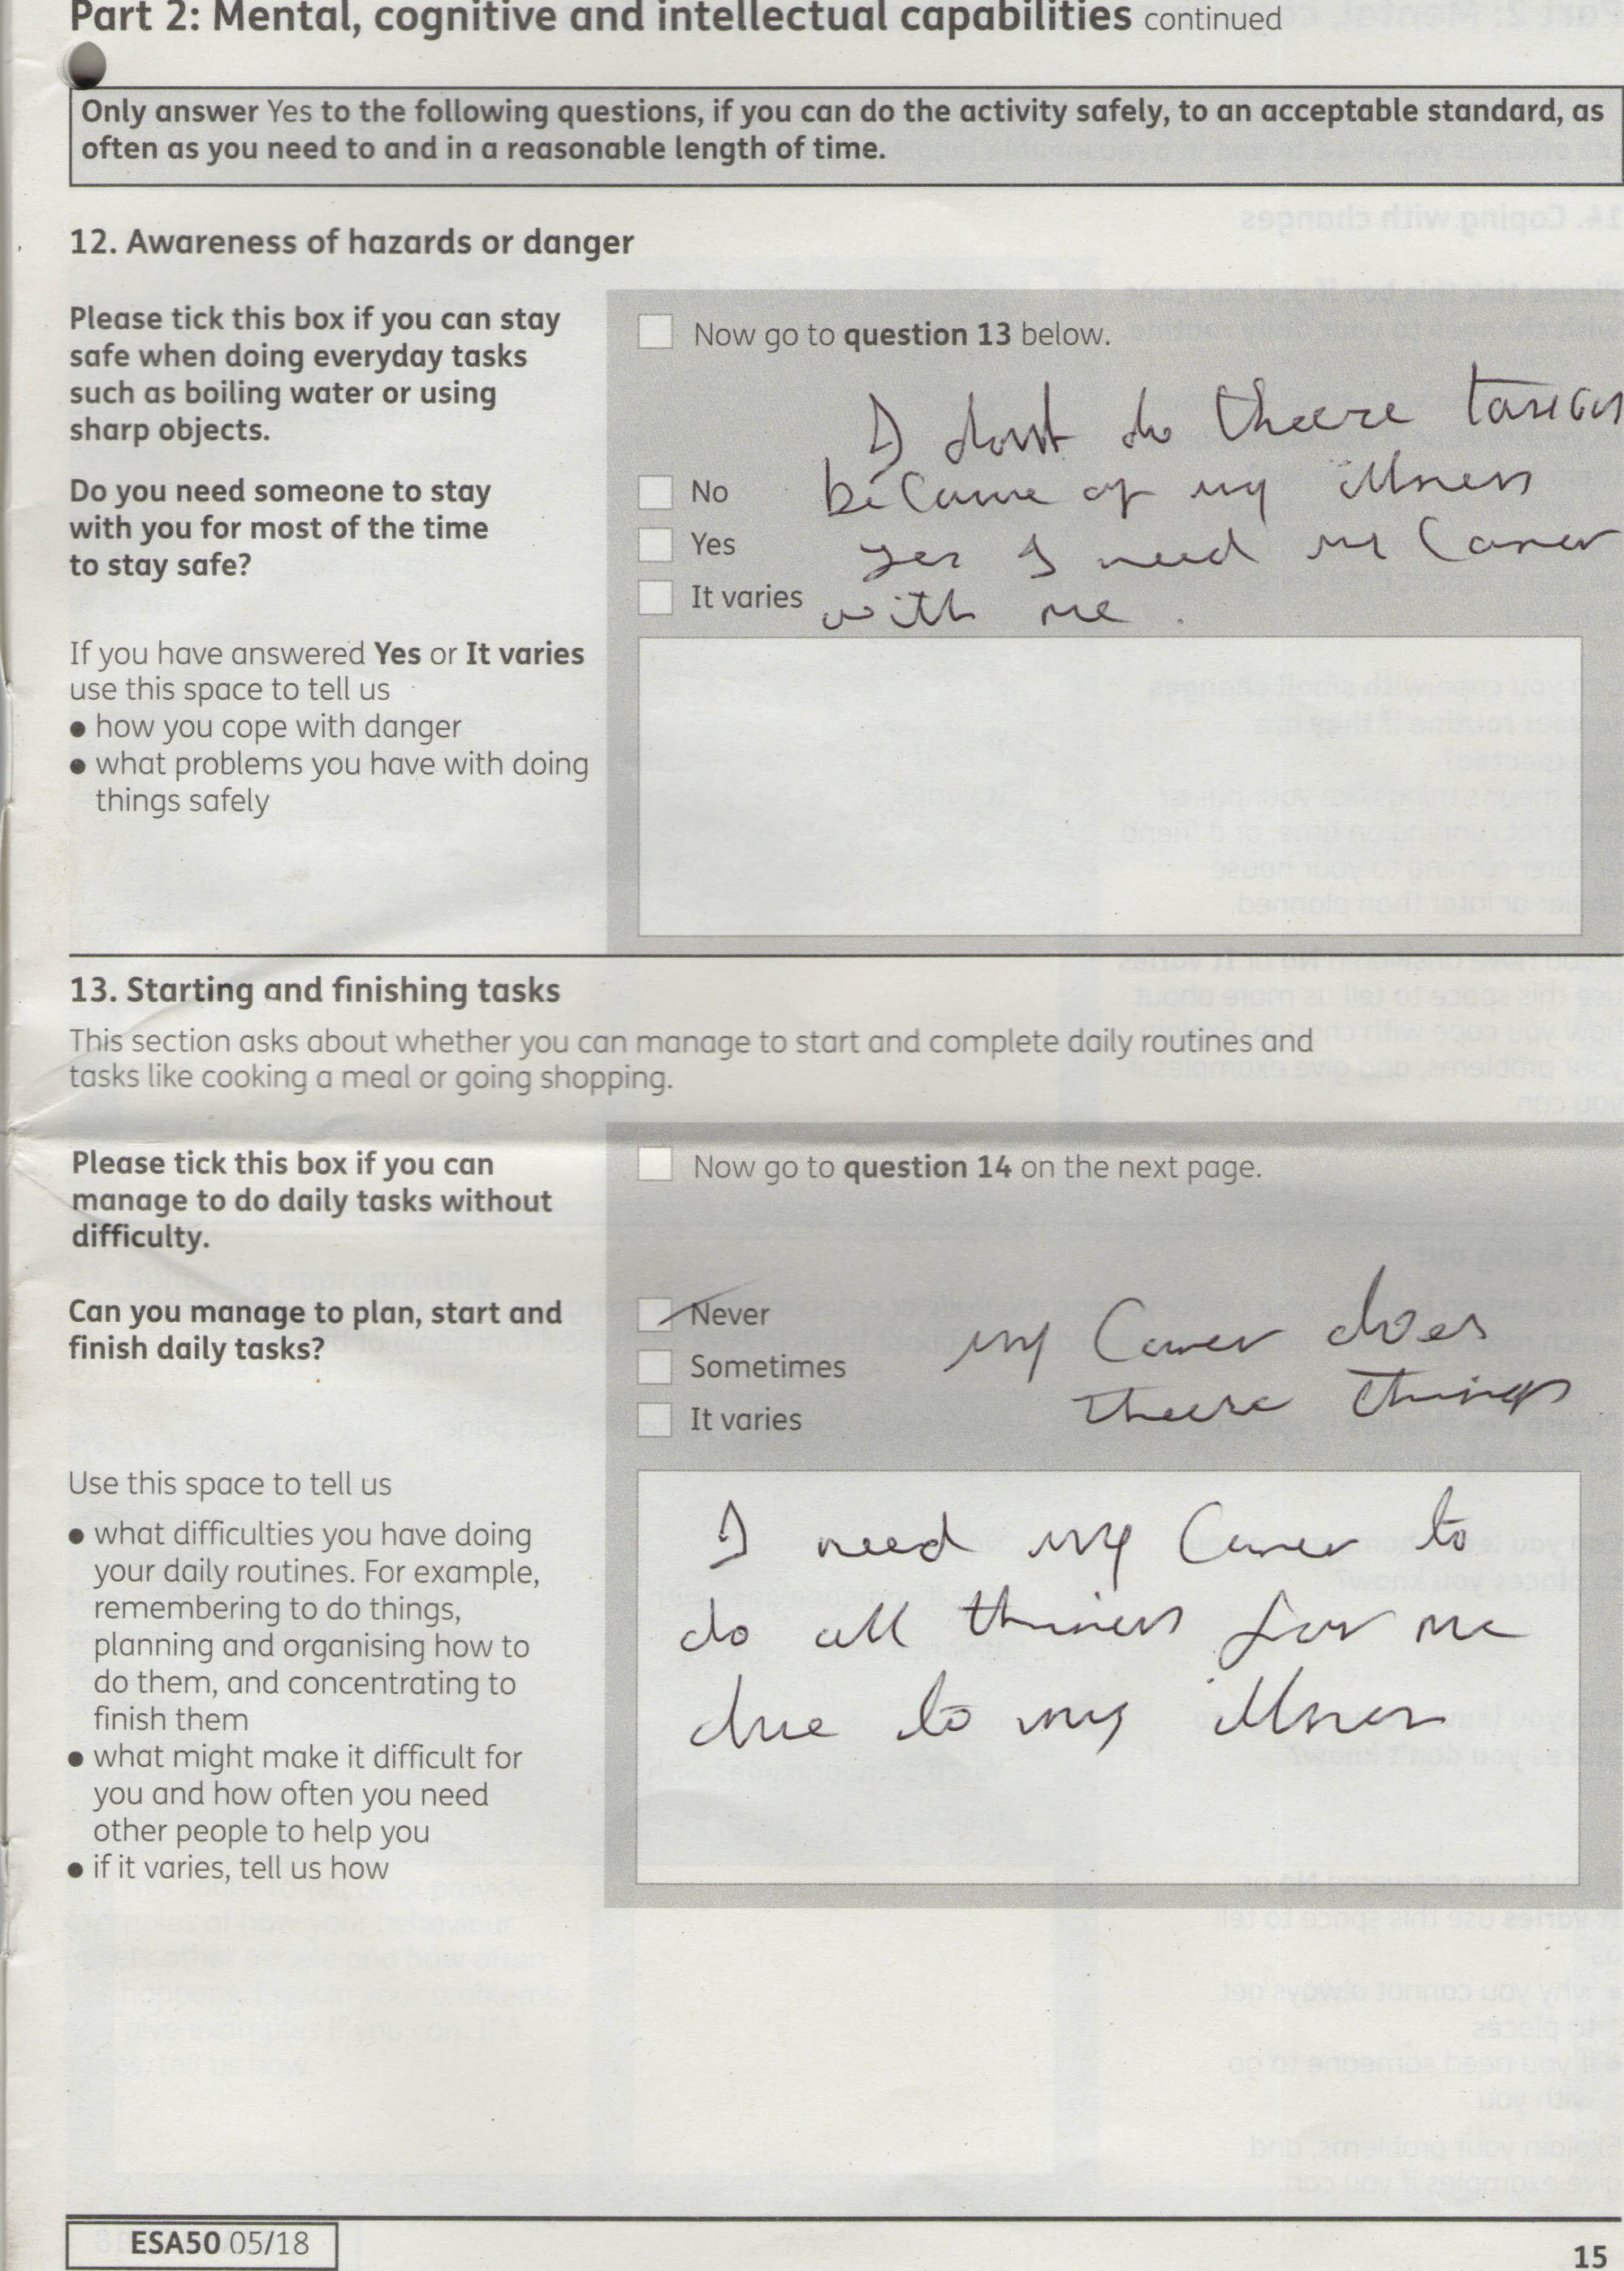 Part 2: Mental, cognitive and intellectual capabilities continued
Only answer Yes to the following questions, if you can do the activity safely, to an acceptable standard, as
often as you need to and in a reasonable length of time.
12. Awareness of hazards or danger
Please tick this box if you can stay
safe when doing everyday tasks
such as boiling water or using
sharp objects.
Now go to question 13 below.
I dont do these tasks
because of my illness
Do you need someone to stay
with you for most of the time
to stay safe?
No
Yes
It varies
yes I need my Carer
with me.
If you have answered Yes or It varies
use this space to tell us
• how you cope with danger
• what problems you have with doing
things safely
13. Starting and finishing tasks
This section asks about whether you can manage to start and complete daily routines and
tasks like cooking a meal or going shopping.
Please tick this box if you can
manage to do daily tasks without
difficulty.
Now go to question 14 on the next page.
Can you manage to plan, start and
finish daily tasks?
Never
Sometimes
It varies
my Carer does
these things
Use this space to tell us
• what difficulties you have doing
your daily routines. For example,
remembering to do things,
planning and organising how to
do them, and concentrating to
finish them
• what might make it difficult for
you and how often you need
other people to help you
• if it varies, tell us how
I need my Carer to
do all things for me
due to my illness
ESA50 05/18
15